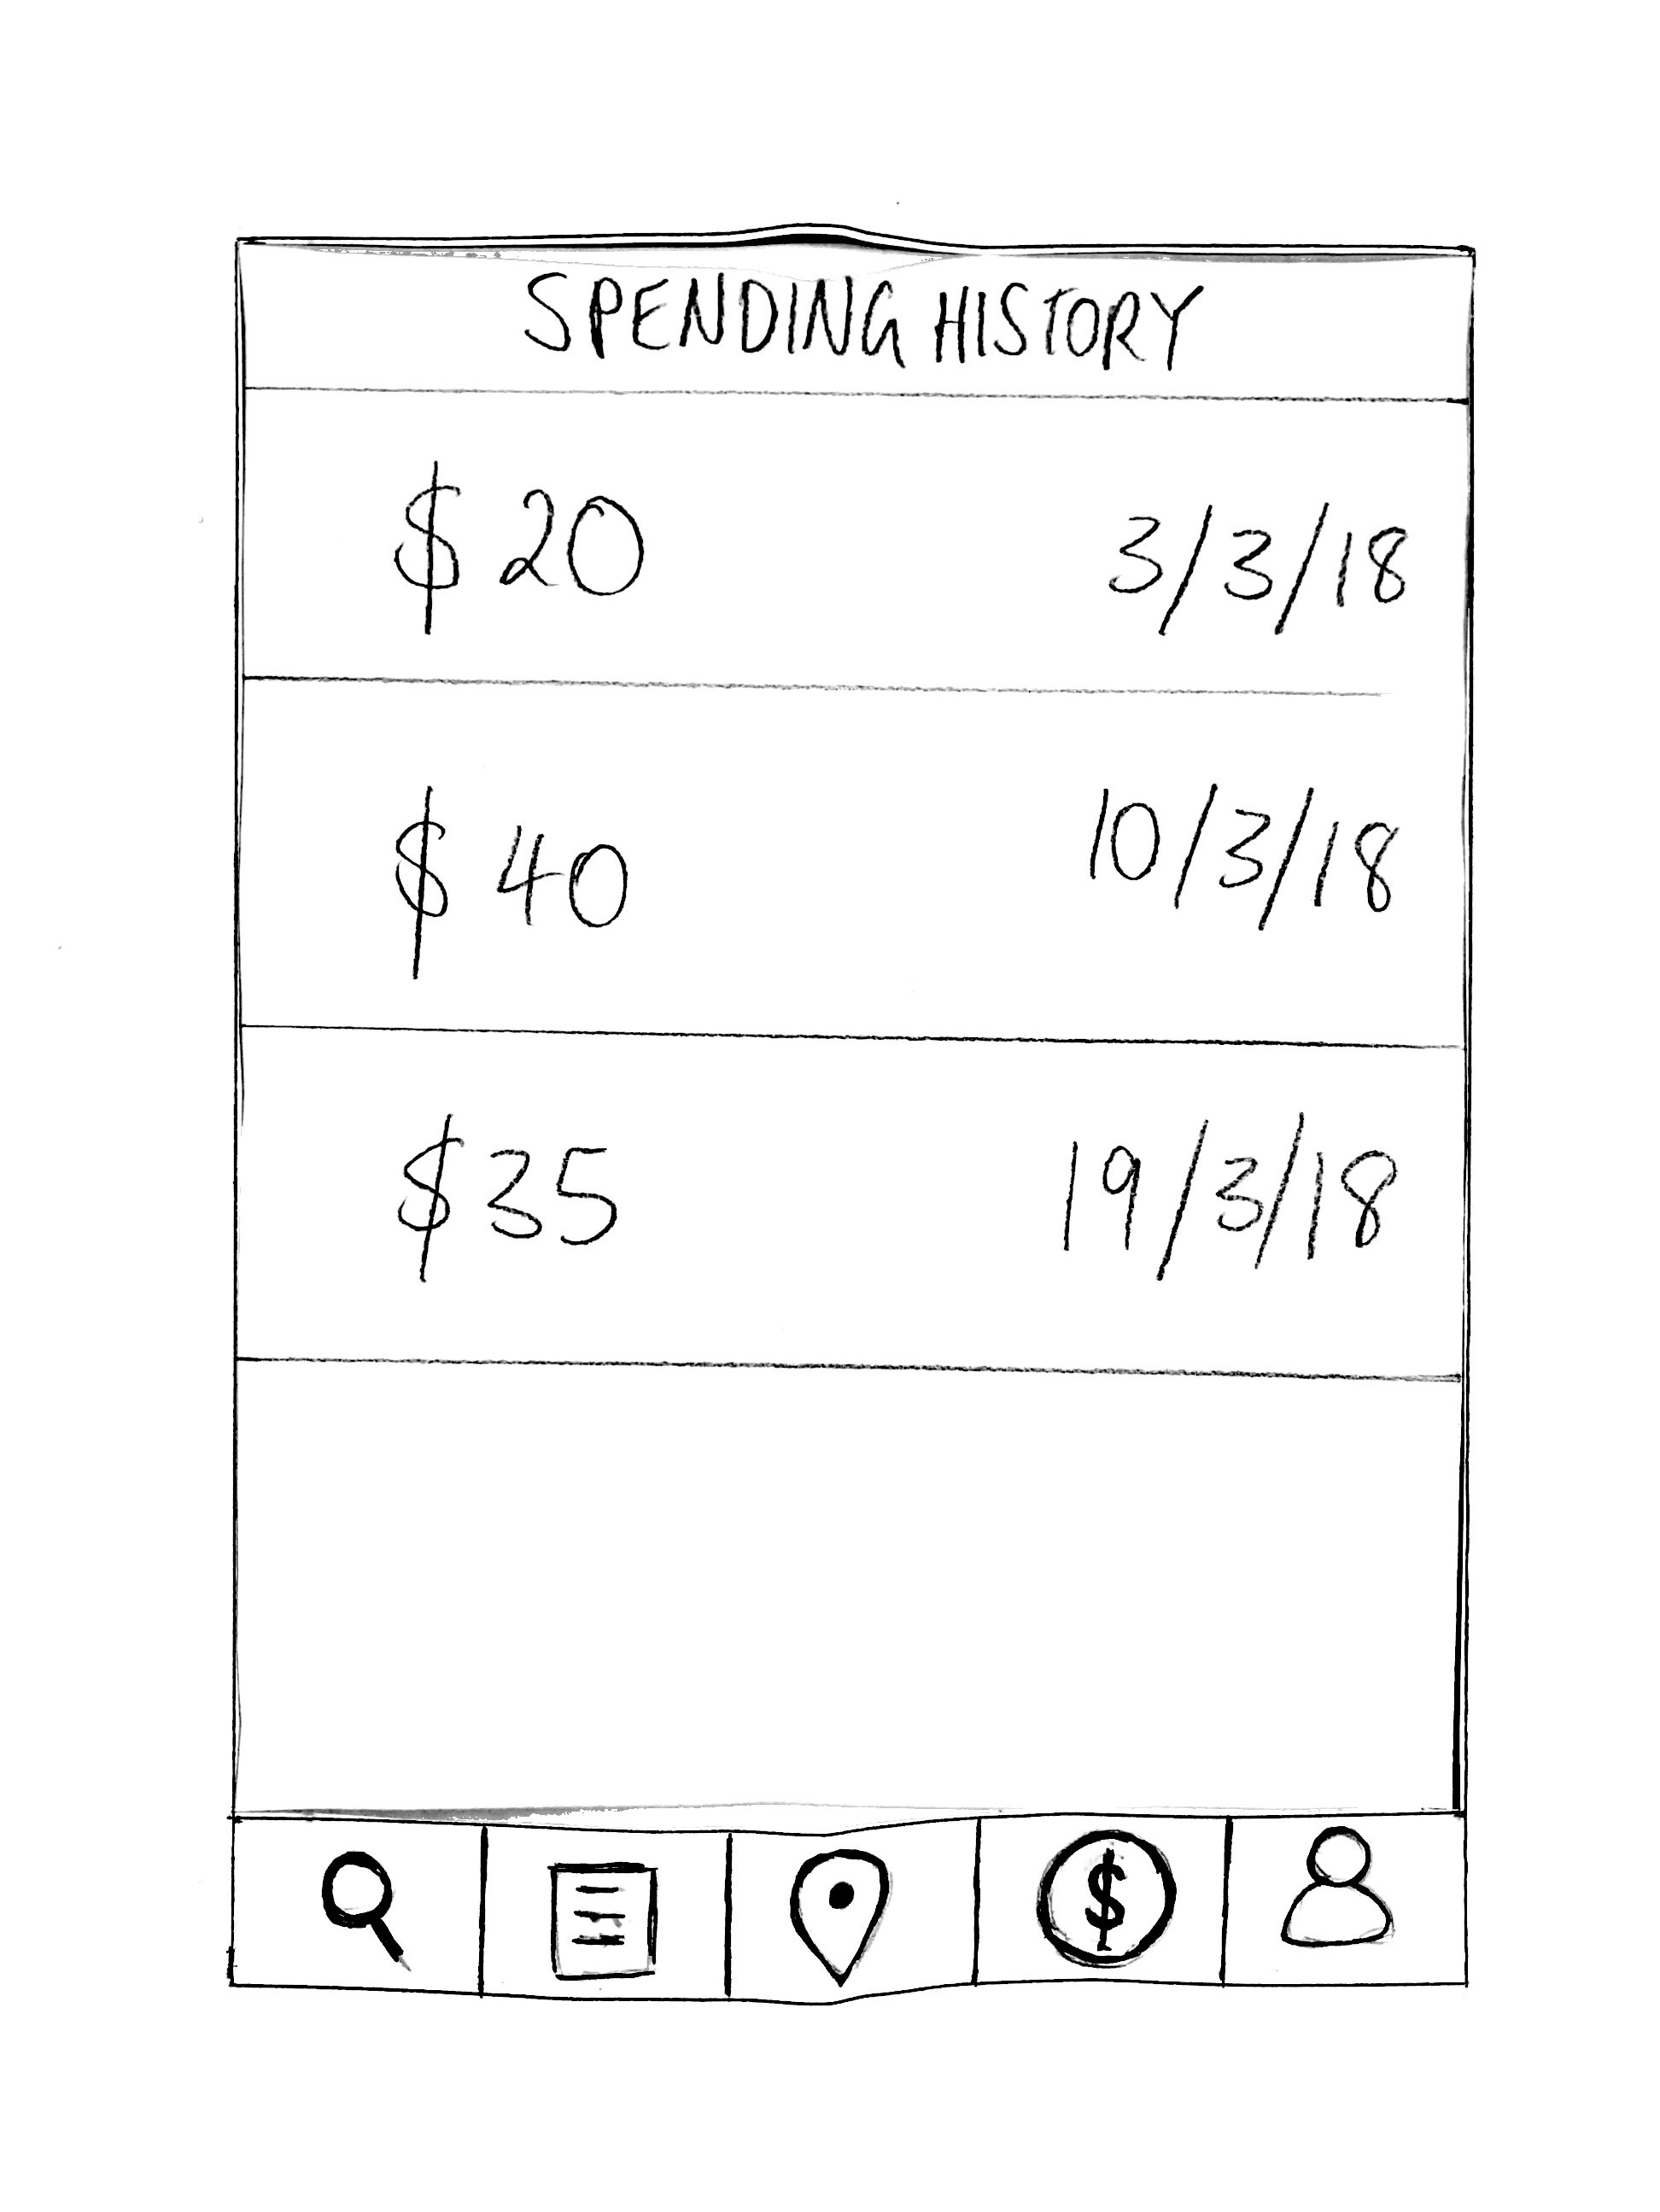 SPENDING HISTORY
$ 20 3/3/18
$ 40 10/3/18
$ 35 19/3/18
$